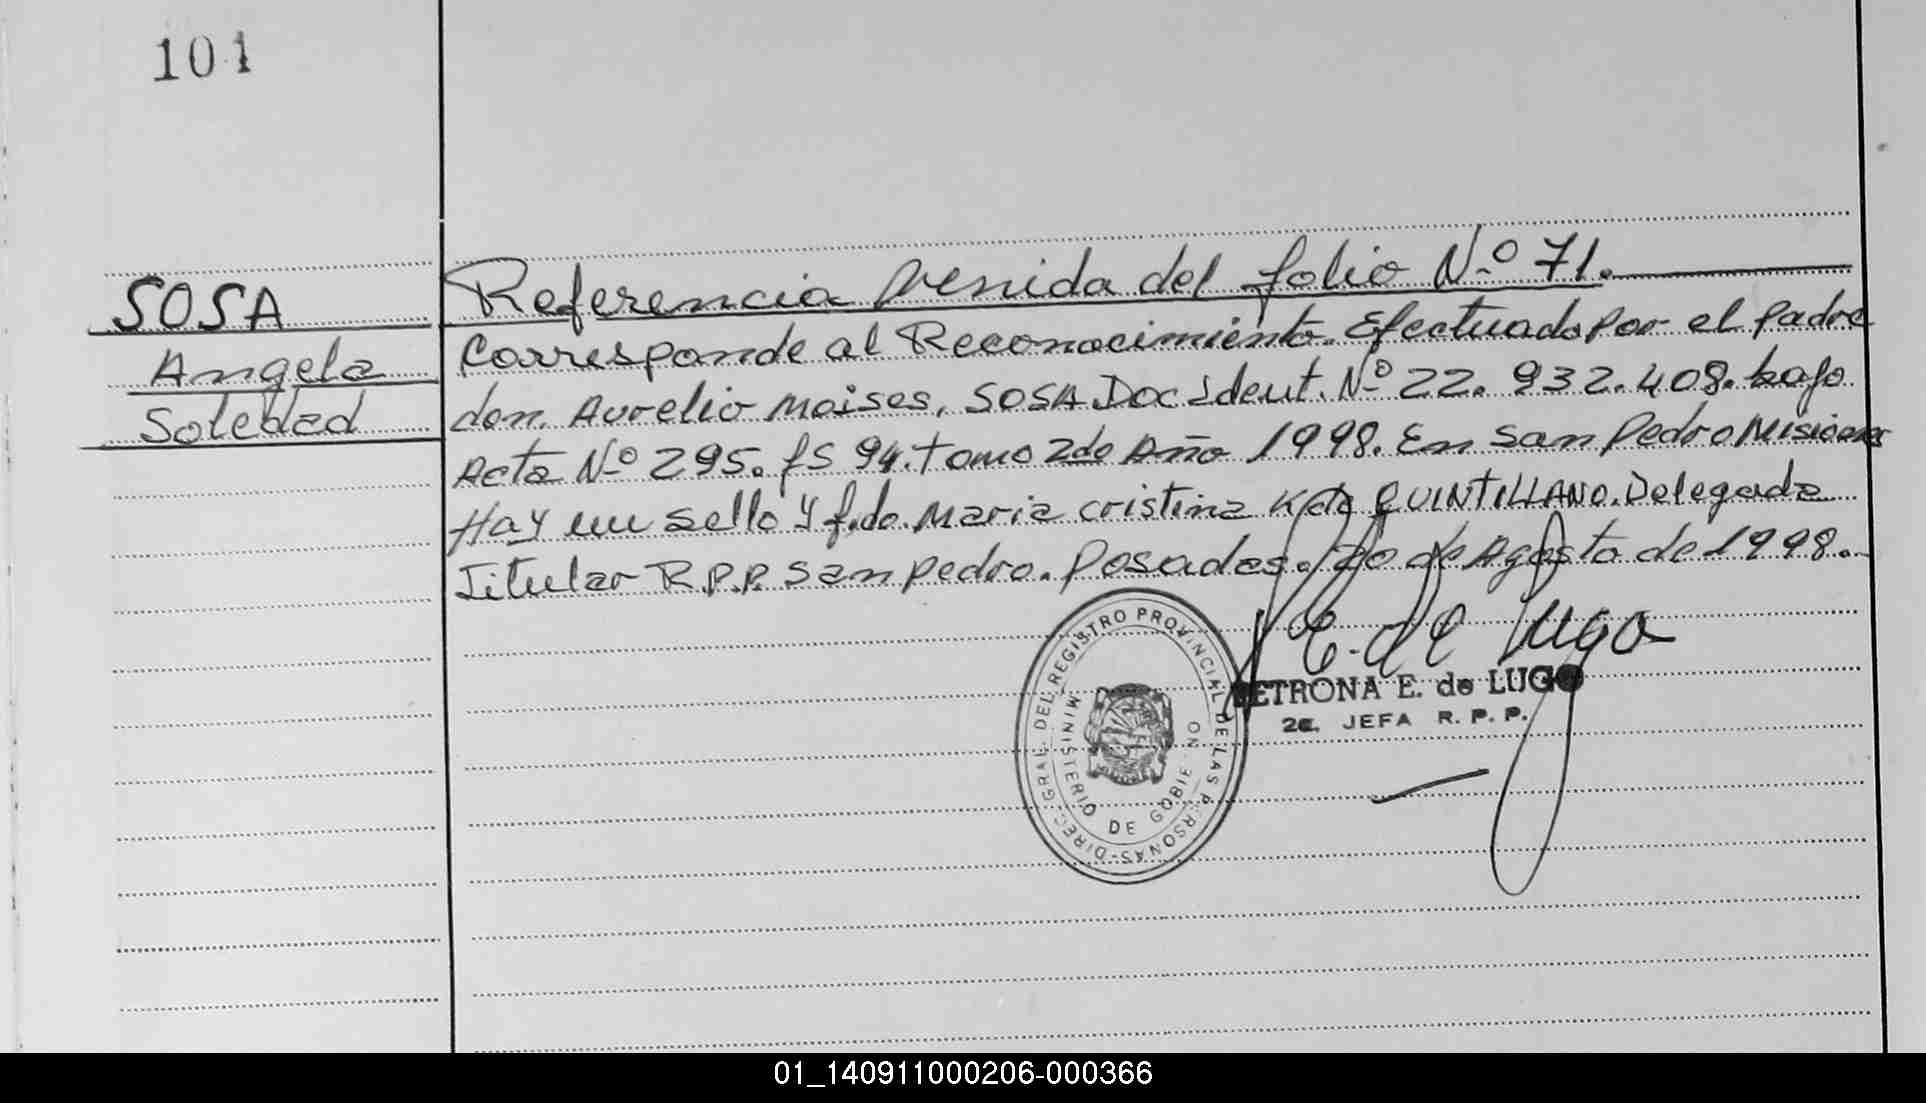 101
SOSA
Angela
Soledad
Referencia venida del folio N.º 71.
Corresponde al Reconocimiento. Efectuado por el padre
don. Aurelio Moises, SOSA Doc Ident. Nº 22. 932. 408. bajo
Acta Nº 295. fs 94. tomo 2do Año 1998. En San Pedro Misiones
Hay un sello y f.do. Maria cristina K de QUINTILLANO. Delegada
Titular R.P.P. San pedro. Posadas. 20 de Agosto de 1998.
E. de Lugo
PETRONA E. de LUGO
2a. JEFA R. P. P.
DIREC. GRAL. DEL REGISTRO PROVINCIAL DE LAS PERSONAS-
MINISTERIO DE GOBIERNO
01_140911000206-000366